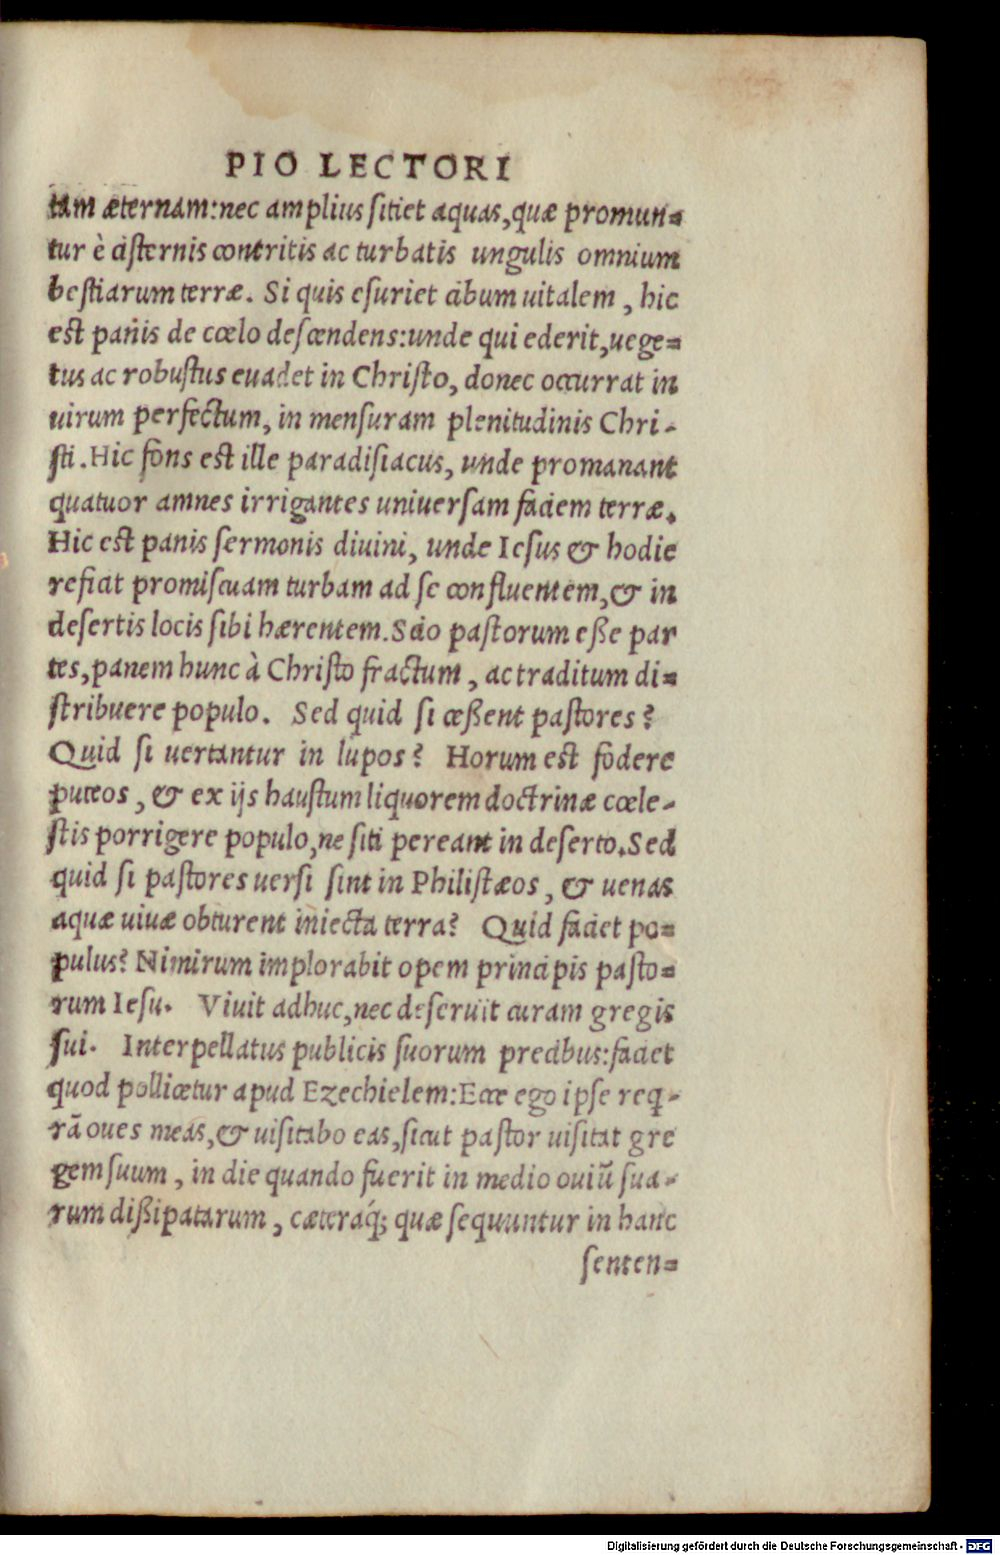 PIO LECTORI
tam æternam:nec amplius ſitiet aquas,quæ promun=
tur è ciſternis contritis ac turbatis ungulis omnium
beſtiarum terræ. Si quis eſuriet cibum uitalem, hic
eſt panis de cœlo deſcendens:unde qui ederit,uege=
tus ac robuſtus euadet in Chriſto, donec occurrat in
uirum perfectum, in menſuram plenitudinis Chri-
ſti. Hic fons eſt ille paradiſiacus, unde promanant
quatuor amnes irrigantes uniuerſam faciem terræ.
Hic eſt panis ſermonis diuini, unde Ieſus & hodie
reficit promiſcuam turbam ad ſe confluentem,& in
deſertis locis ſibi hærentem. Scio paſtorum eße par
tes,panem hunc à Chriſto fractum, ac traditum di=
ſtribuere populo. Sed quid ſi ceßent paſtores?
Quid ſi uertantur in lupos? Horum eſt fodere
puteos, & ex ijs hauſtum liquorem doctrinæ cœle-
ſtis porrigere populo,ne ſiti pereant in deſerto. Sed
quid ſi paſtores uerſi ſint in Philiſtæos, & uenas
aquæ uiuæ obturent iniecta terra? Quid faciet po=
pulus? Nimirum implorabit opem principis paſto=
rum Ieſu. Viuit adhuc,nec deſeruit curam gregis
ſui. Interpellatus publicis ſuorum precibus:faciet
quod pollicetur apud Ezechielem:Ecce ego ipſe req-
rā oues meas,& uiſitabo eas,ſicut paſtor uiſitat gre
gem ſuum, in die quando fuerit in medio ouiū ſua-
rum dißipatarum, cæteráq; quæ ſequuntur in hanc
ſenten=
Digitalisierung gefördert durch die Deutsche Forschungsgemeinschaft - DFG